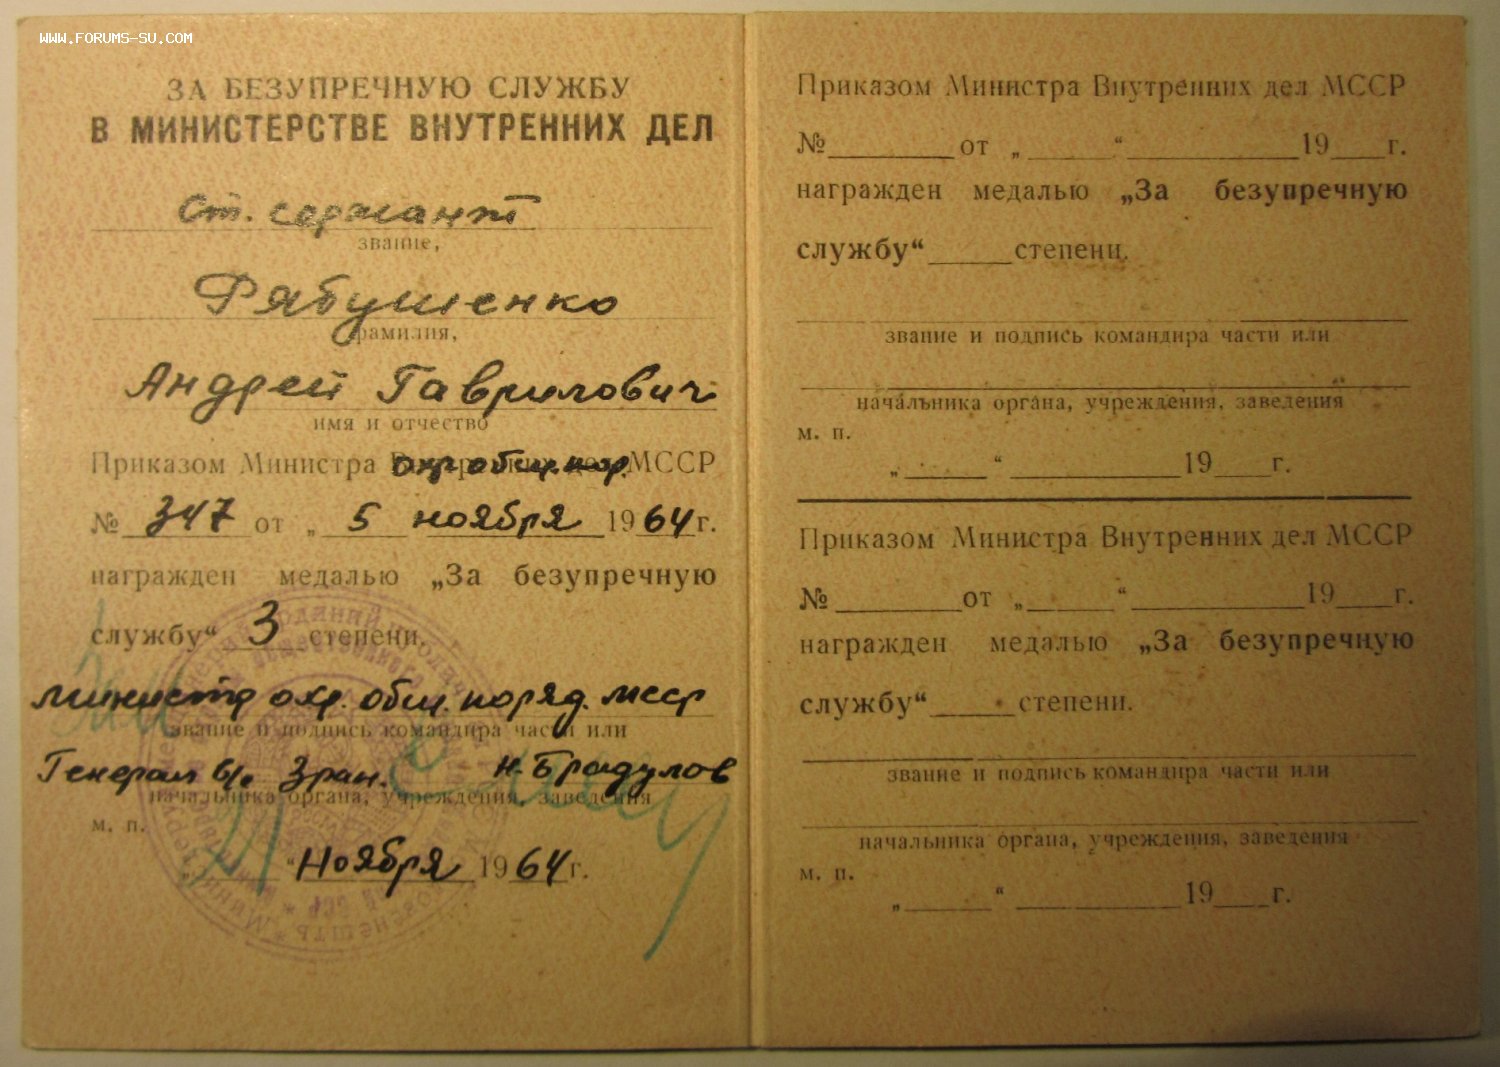 WWW.FORUMS-SU.COM
ЗА БЕЗУПРЕЧНУЮ СЛУЖБУ
В МИНИСТЕРСТВЕ ВНУТРЕННИХ ДЕЛ
Ст. сержант
звание,
Рябушенко
фамилия,
Андрей Гаврилович
имя и отчество
Приказом Министра охр. общ. пор. МССР
№ 347 от „ 5 ноября 1964 г.
награжден медалью „За безупречную
службу“ 3 степени.
Министр охр. общ. поряд. МССР
звание и подпись командира части или
Генерал в/с 3 ран. Н. Брадулов
начальника органа, учреждения, заведения
м. п.
“ Ноября 1964 г.
Приказом Министра Внутренних дел МССР
№ от „ “ 19 г.
награжден медалью „За безупречную
службу“ степени.
звание и подпись командира части или
начальника органа, учреждения, заведения
м. п.
„ “ 19 г.
Приказом Министра Внутренних дел МССР
№ от „ “ 19 г.
награжден медалью „За безупречную
службу“ степени.
звание и подпись командира части или
начальника органа, учреждения, заведения
м. п.
„ “ 19 г.